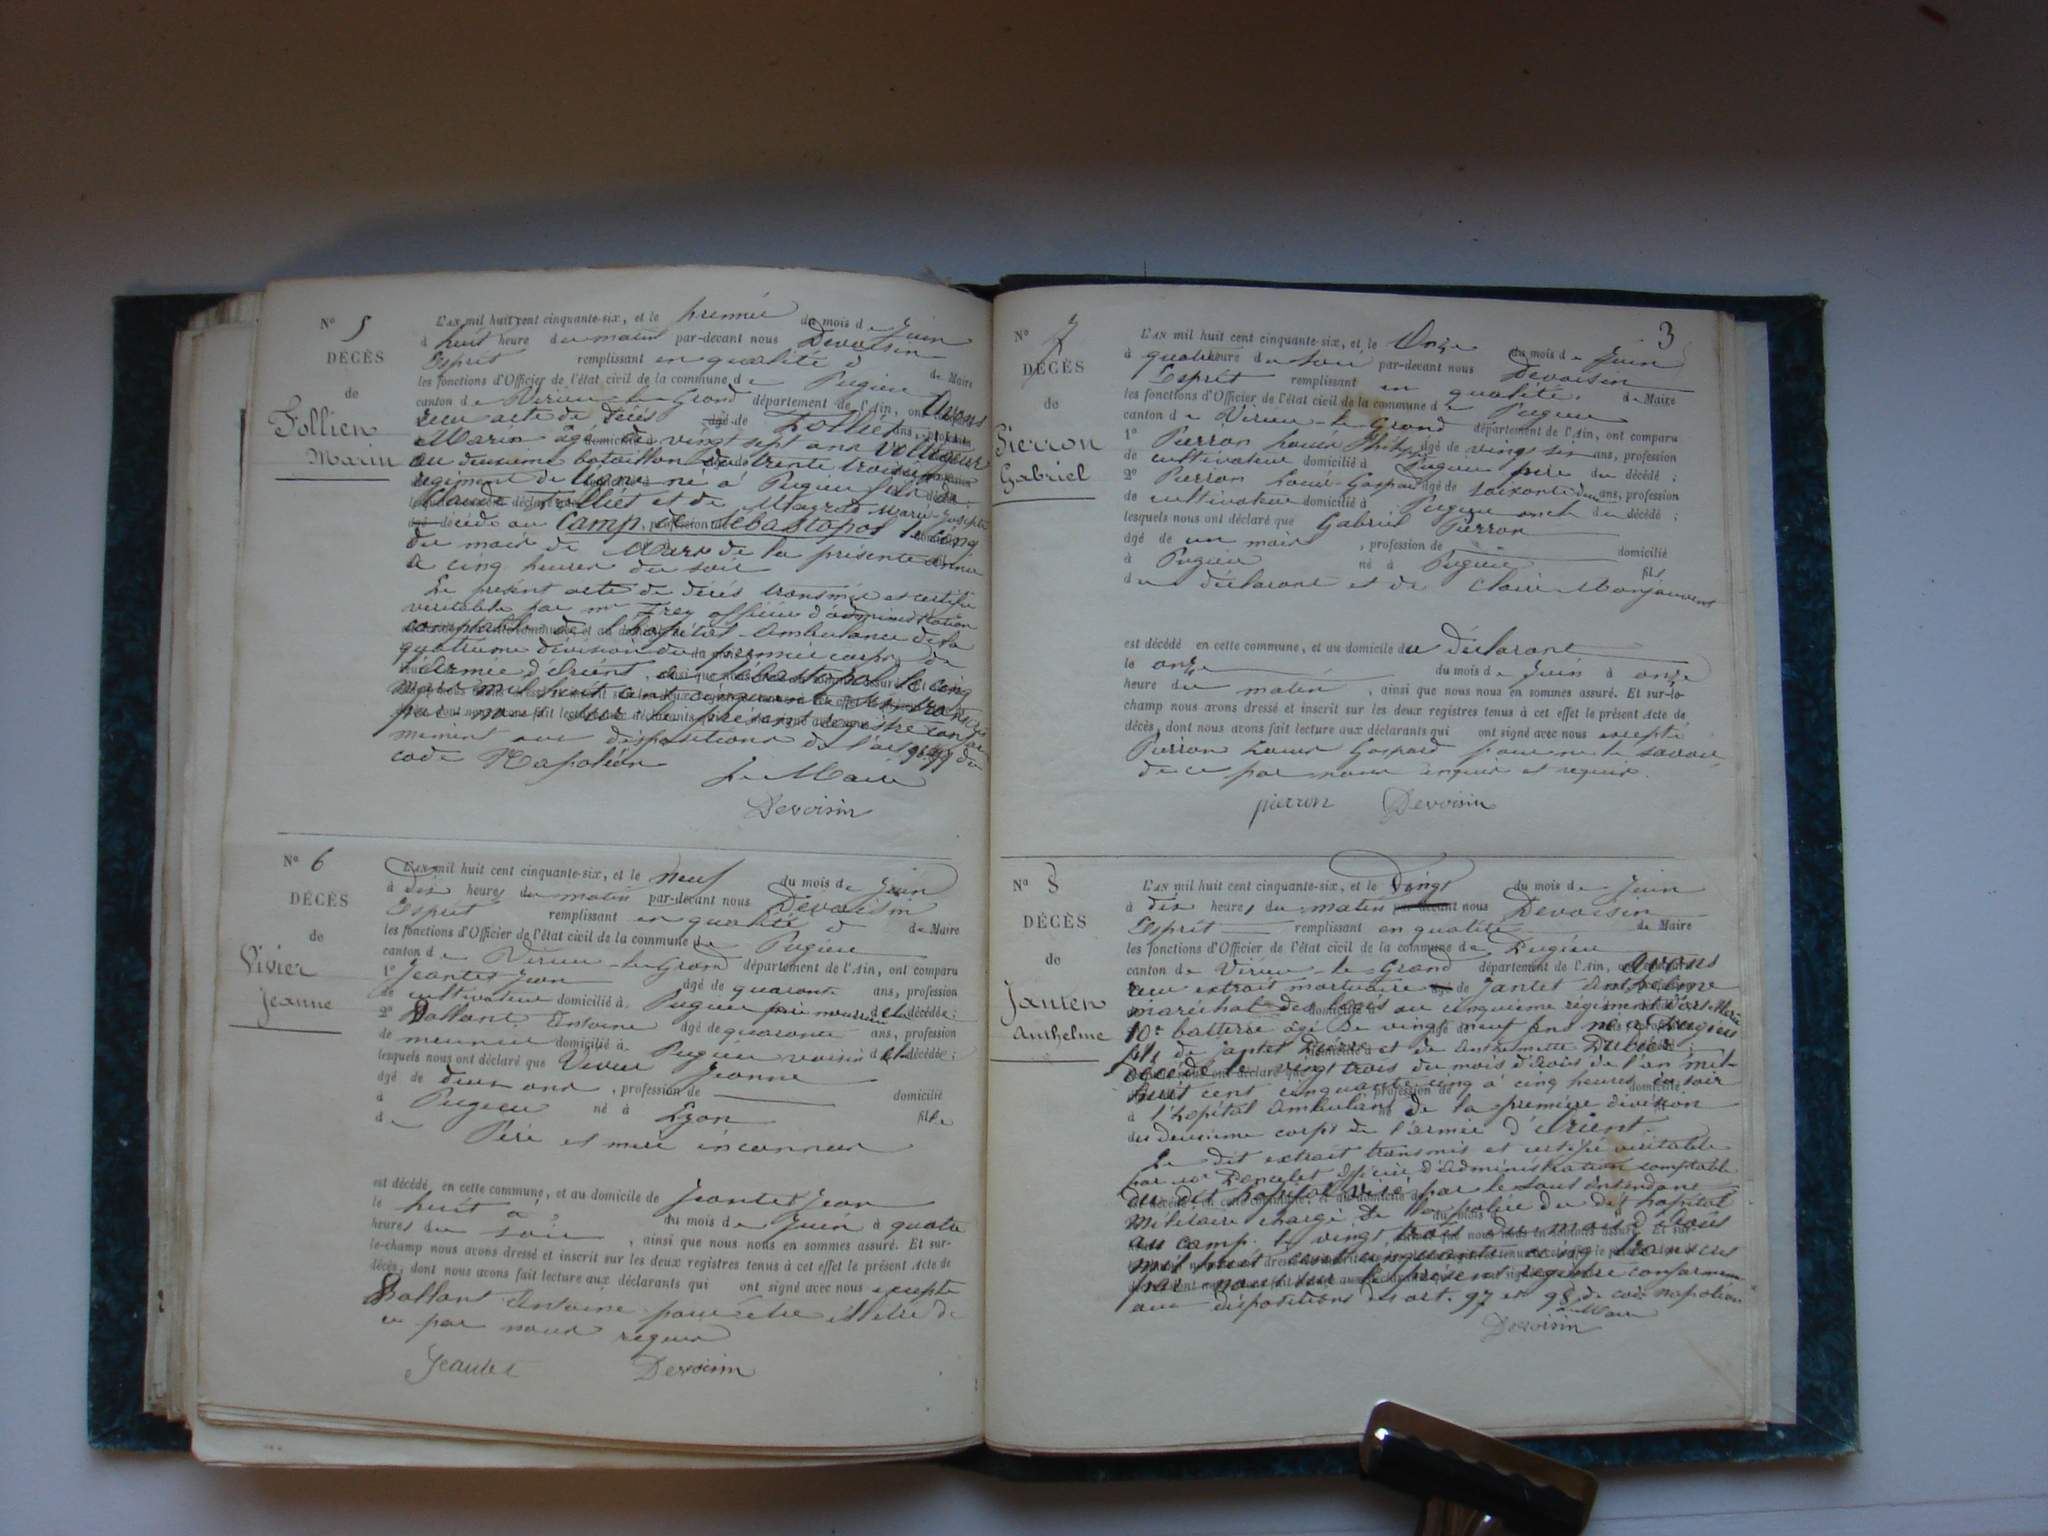 Nº 5
DÉCÈS
de
Follien
Marin
L'AN mil huit cent cinquante-six, et le premier du mois de Juin
à huit heure du matin par-devant nous Devoisin
Esprit remplissant en qualité d de Maire
les fonctions d'Officier de l'état civil de la commune de Pugieu
canton de Virieu-le-Grand département de l'Ain, avons
reçu acte de décès de Folliet
Marin âgé de vingt sept ans Voltigeur
au deuxième bataillon du trente troisième
régiment de ligne né à Pugieu fils de
Claude Folliet et de Marie-Josephte
décédé au Camp de Sébastopol le cinq
du mois de Mars de la présente année
à cinq heures du soir
Le présent acte de décès transmis et certifié
véritable par mr Frey officier d'administration
comptable de l'hôpital-ambulance de la
quatrième division du premier corps de
l'Armée d'Orient, à Sébastopol le cinq
mars mil huit cent cinquante six transcrit
par nous sur le présent registre
aux dispositions de l'art 98 du
code Napoléon Le Maire
Devoisin
Nº 6
DÉCÈS
de
Vivier
Jeanne
L'AN mil huit cent cinquante-six, et le neuf du mois de Juin
à dix heures du matin par-devant nous Devoisin
Esprit remplissant en qualité d de Maire
les fonctions d'Officier de l'état civil de la commune de Pugieu
canton de Virieu-le-Grand département de l'Ain, ont comparu
1º Jeantet Jean âgé de quarante ans, profession
de cultivateur domicilié à Pugieu père nourricier de la décédée;
2º Ballant Antoine âgé de quarante ans, profession
de meunier domicilié à Pugieu voisin de la décédée;
lesquels nous ont déclaré que Vivier Jeanne
âgé de deux ans, profession de domicilié
à Pugieu né à Lyon fille
de Père et mère inconnus
est décédé en cette commune, et au domicile de Jeantet Jean
le huit du mois de Juin à quatre
heures du soir, ainsi que nous nous en sommes assuré. Et sur-
le-champ nous avons dressé et inscrit sur les deux registres tenus à cet effet le présent Acte de
décès, dont nous avons fait lecture aux déclarants qui ont signé avec nous excepté
Ballant Antoine pour être illétré de
ce par nous requis
Jeantet Devoisin
3
Nº 7
DÉCÈS
de
Pierron
Gabriel
L'AN mil huit cent cinquante-six, et le Onze du mois de Juin
à quatre heure du soir par-devant nous Devoisin
Esprit remplissant en qualité de Maire
les fonctions d'Officier de l'état civil de la commune de Pugieu
canton de Virieu-le-Grand département de l'Ain, ont comparu
1º Pierron Louis Philippe âgé de vingt six ans, profession
de cultivateur domicilié à Pugieu père du décédé;
2º Pierron Louis-Gaspard âgé de soixante deux ans, profession
de cultivateur domicilié à Pugieu oncle du décédé;
lesquels nous ont déclaré que Gabriel Pierron
âgé de un mois, profession de domicilié
à Pugieu né à Pugieu fils
du déclarant et de Claire Monjauvent
est décédé en cette commune, et au domicile du déclarant
le onze du mois de Juin à onze
heure du matin, ainsi que nous nous en sommes assuré. Et sur-le-
champ nous avons dressé et inscrit sur les deux registres tenus à cet effet le présent Acte de
décès, dont nous avons fait lecture aux déclarants qui ont signé avec nous excepté
Pierron Louis Gaspard pour ne le savoir
de ce par nous enquis et requis.
pierron Devoisin
Nº 8
DÉCÈS
de
Janten
Anthelme
L'AN mil huit cent cinquante-six, et le Vingt du mois de Juin
à dix heures du matin par-devant nous Devoisin
Esprit remplissant en qualité de Maire
les fonctions d'Officier de l'état civil de la commune de Pugieu
canton de Virieu-le-Grand département de l'Ain, avons
reçu extrait mortuaire de Jantet Anthelme
maréchal des logis au cinquième régiment d'artillerie
10e batterie âgé de vingt neuf ans né à Pugieu
fils de jantet et de Anthelmette Dubier
décédé le vingt trois du mois d'Aoûs de l'an mil
huit cent cinquante cinq à cinq heures du soir
à l'hôpital Ambulant de la première division
du deuxième corps de l'armée d'Orient.
Le dit extrait transmis et certifié véritable
par mr Poncelet officier d'administration comptable
du dit hopital visé par le sous intendant
Militaire chargé de la police du dit hopital
au camp. le vingt trois du mois d'Aoûs
mil huit cent cinquante cinq transcrit
par nous sur le présent registre conformém
aux dispositions des art. 97 et 98 du code napoléon
Maire
Devoisin